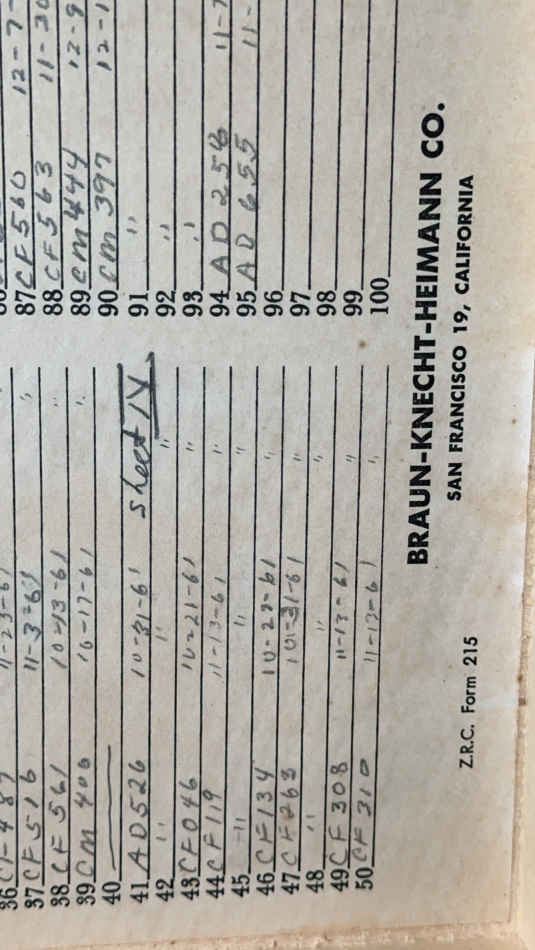 37 CF 516 11-3-61 "
38 CF 561 10-13-61 "
39 CM 400 10-17-61 "
40
41 AD 526 10-31-61 Sheet IV
42 " " "
43 CF 046 10-21-61 "
44 CF 119 11-13-61 "
45 " " "
46 CF 134 10-28-61 "
47 CF 263 10-31-61 "
48 " " "
49 CF 308 11-13-61 "
50 CF 310 11-13-61 "
87 CF 560 12-7-
88 CF 563 11-30
89 CM 444 12-9
90 CM 397 12-1
91 "
92 "
93 "
94 AD 256 11-
95 AD 655 11-
96
97
98
99
100
BRAUN-KNECHT-HEIMANN CO.
SAN FRANCISCO 19, CALIFORNIA
Z.R.C. Form 215